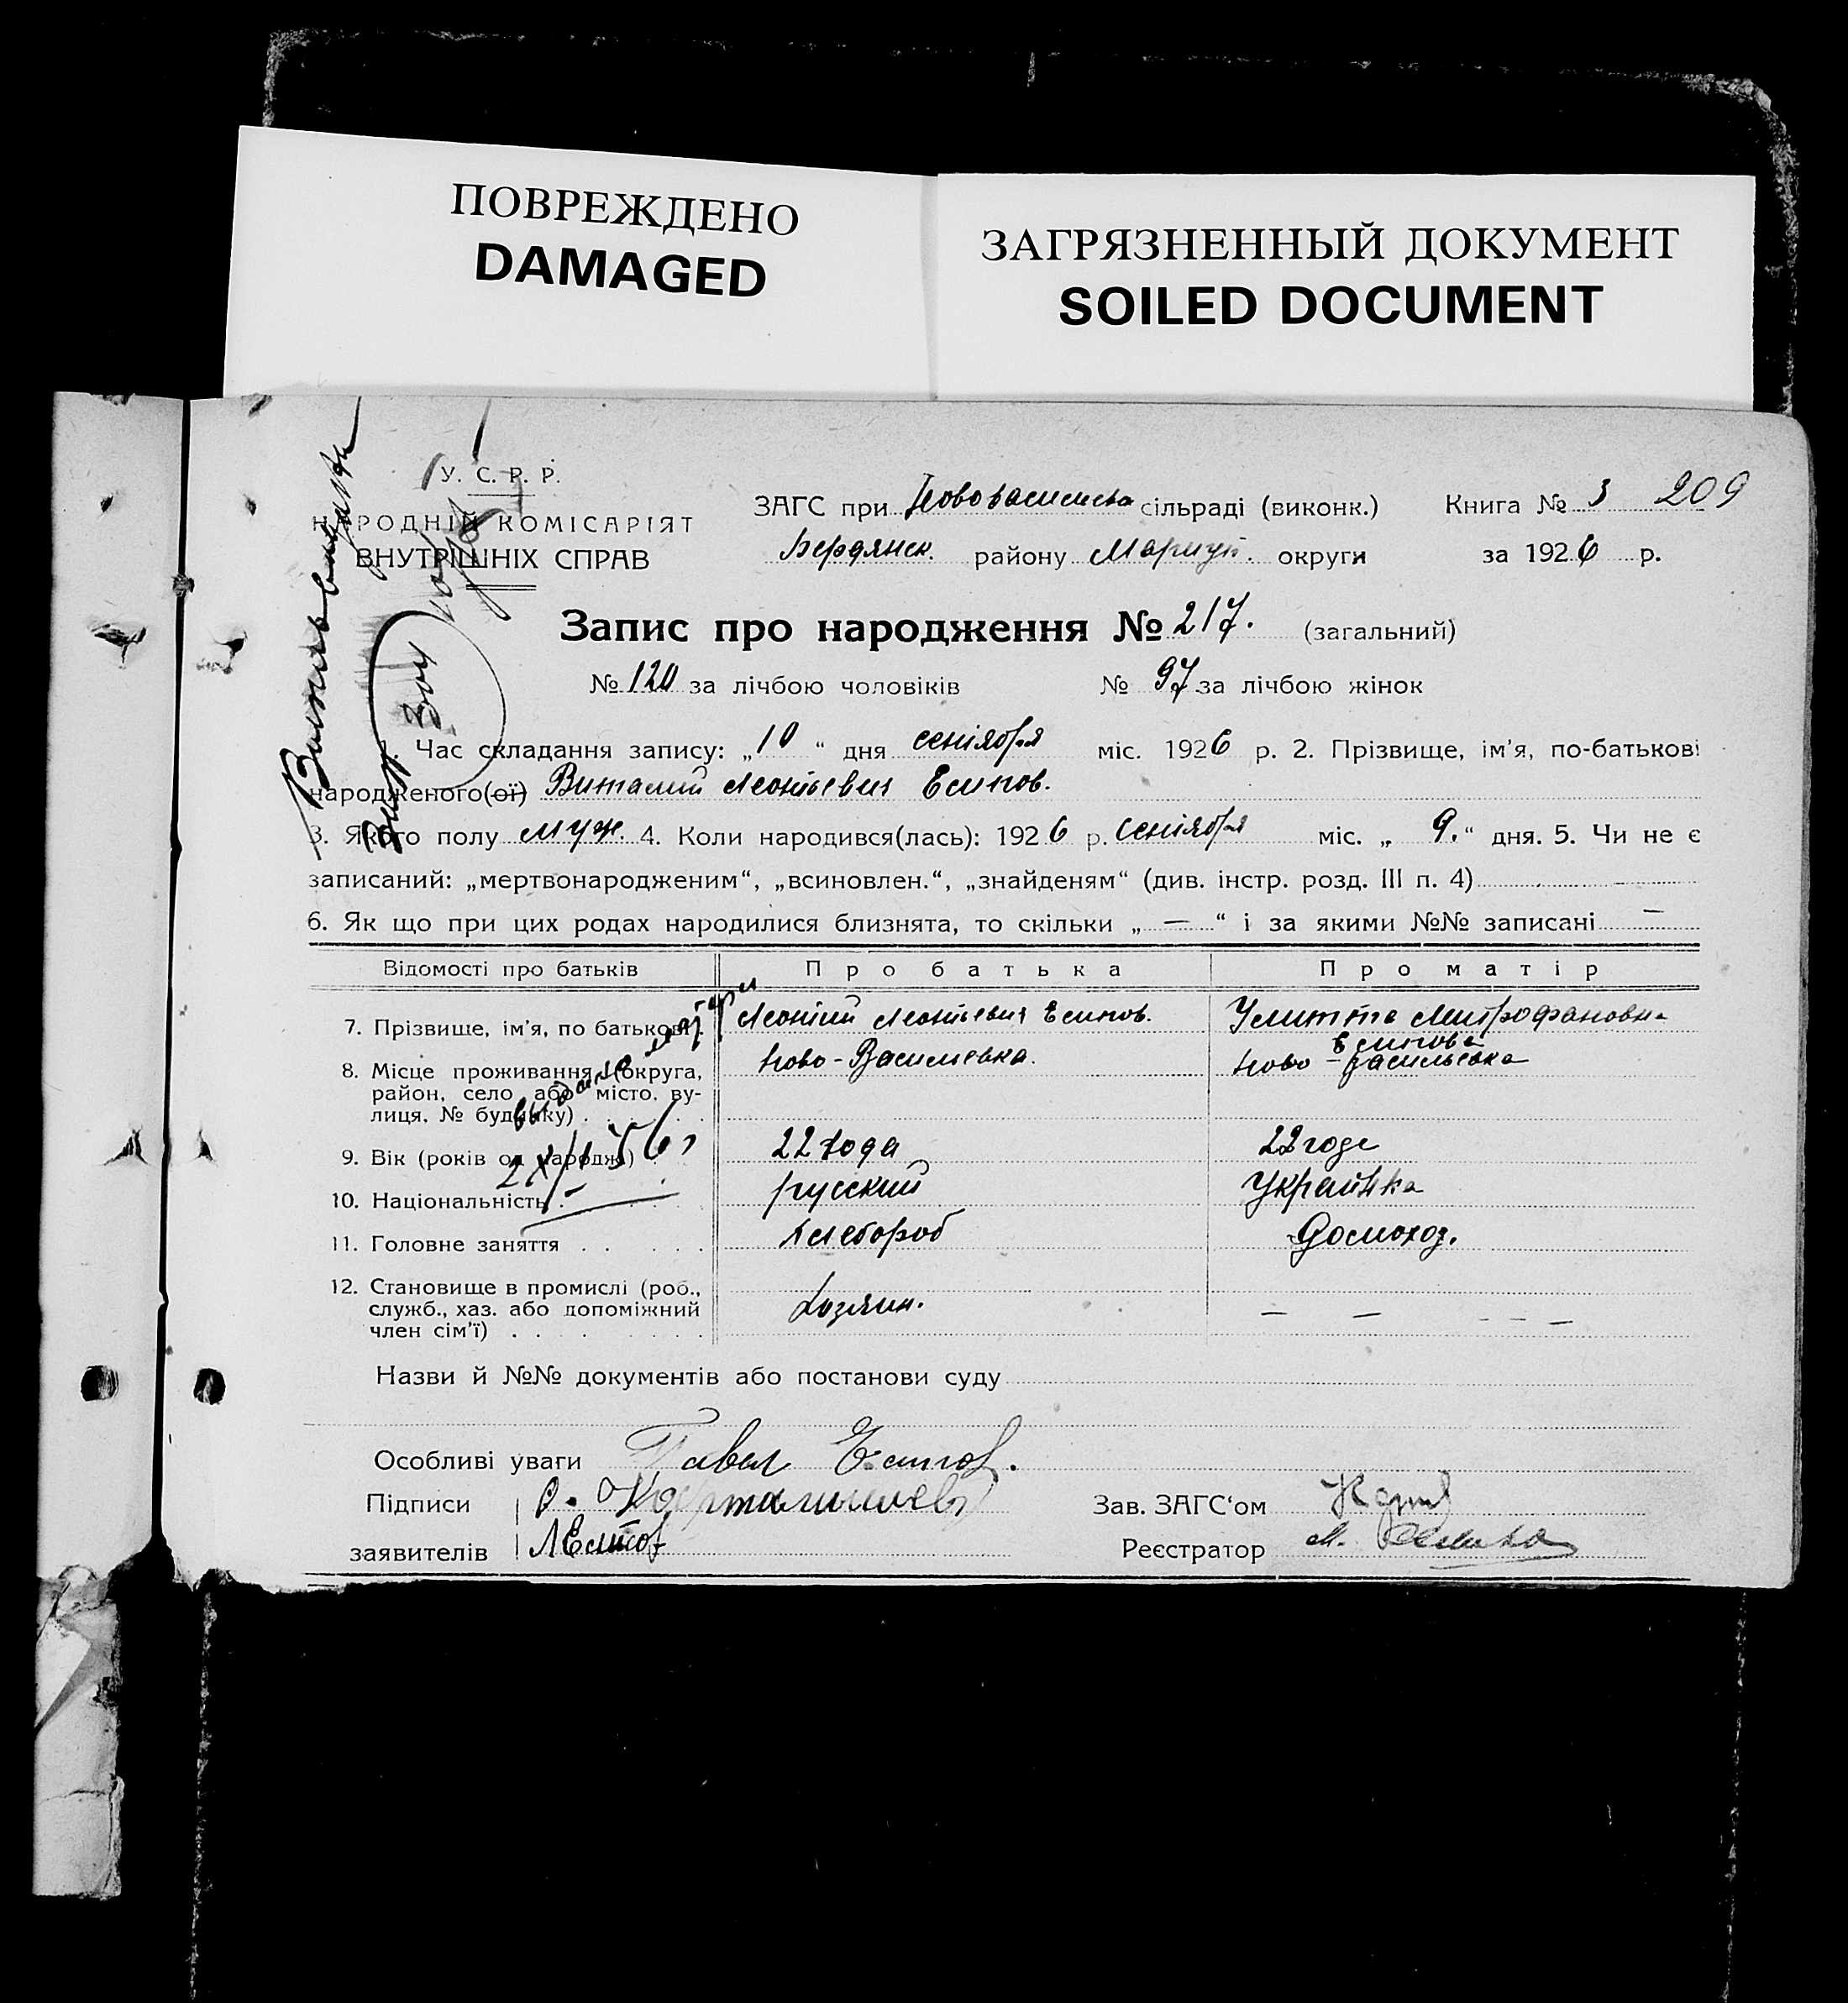 ПОВРЕЖДЕНО
DAMAGED
ЗАГРЯЗНЕННЫЙ ДОКУМЕНТ
SOILED DOCUMENT
У. С. Р. Р.
НАРОДНІЙ КОМІСАРІЯТ
ВНУТРІШНІХ СПРАВ
ЗАГС при сільраді (виконк.) Книга № 3 209
Бердянск. району Мариуп. округи за 1926 р.
Запис про народження № 217. (загальний)
№ 120 за лічбою чоловіків № 97 за лічбою жінок
1. Час складання запису: „10“ дня сентября міс. 1926 р. 2. Прізвище, ім’я, по-батькові
народженого(ої) Виталий Леонтьевич Есипов.
3. Якого полу муж. 4. Коли народився(лась): 1926 р. Сентября міс. „9.“ дня. 5. Чи не є
записаний: „мертвонародженим“, „всиновлен.“, „знайденям“ (див. інстр. розд. III п. 4)
6. Як що при цих родах народилися близнята, то скільки „—“ і за якими №№ записані —
Відомості про батьків Про батька Про матір
7. Прізвище, ім’я, по батькові Леонтий Леонтьевич Есипов. Улитта Митрофановна
Есипова
8. Місце проживання (округа, Ново-Васильевка. Ново-Васильевка
район, село або місто, ву-
лиця, № будинку)
выдано матери
9. Вік (років од народж.) 22 года 22 года
10. Національність русский Украинка
11. Головне заняття хлебороб Домохоз.
12. Становище в промислі (роб.,
служб., хаз. або допоміжний Хозяин. — — - - - —
член сім’ї)
Назви й №№ документів або постанови суду
Особливі уваги Павел Есипов.
Підписи Зав. ЗАГС‘ом
заявителів ЛЕсипов Реєстратор М.